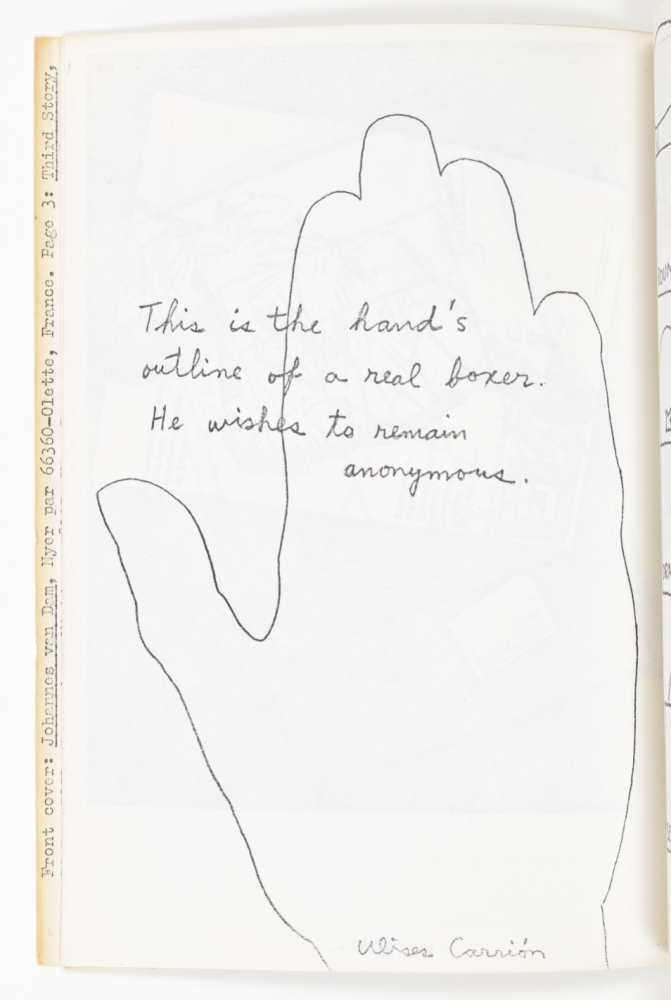 This is the hand's
outline of a real boxer.
He wishes to remain
anonymous.
Ulises Carrión
Front cover: Johannes van Dam, Nyer par 66360-Olette, France. Page 3: Third Story,